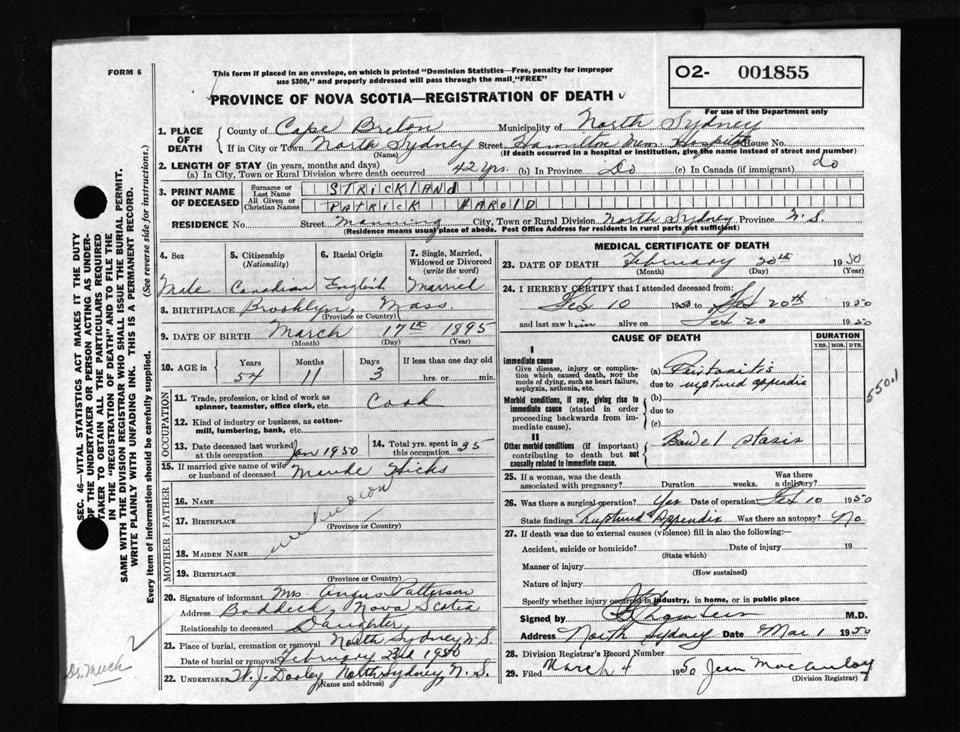 FORM 6
This form if placed in an envelope, on which is printed "Dominion Statistics—Free, penalty for improper
use $300," and properly addressed will pass through the mail "FREE"
O2- 001855
For use of the Department only
PROVINCE OF NOVA SCOTIA—REGISTRATION OF DEATH
1. PLACE OF DEATH
County of Cape Breton Municipality of North Sydney
If in City or Town North Sydney Street Hamilton Mem. Hospital House No.
(Name) (If death occurred in a hospital or institution, give the name instead of street and number)
2. LENGTH OF STAY (in years, months and days)
(a) In City, Town or Rural Division where death occurred 42 yrs. (b) In Province Do (c) In Canada (if immigrant) do
3. PRINT NAME OF DECEASED
Surname or Last Name STRICKLAND
All Given or Christian Names PATRICK HAROLD
RESIDENCE No. Street Manning City, Town or Rural Division North Sydney Province N.S.
(Residence means usual place of abode. Post Office Address for residents in rural parts not sufficient)
4. Sex Male
5. Citizenship (Nationality) Canadian
6. Racial Origin English
7. Single, Married, Widowed or Divorced (write the word) Married
8. BIRTHPLACE Brooklyn, Mass.
(Province or Country)
9. DATE OF BIRTH March 17th 1895
(Month) (Day) (Year)
10. AGE in Years 54 Months 11 Days 3 If less than one day old
hrs. or min.
OCCUPATION
11. Trade, profession, or kind of work as
spinner, teamster, office clerk, etc. Cook
12. Kind of industry or business, as cotton-
mill, lumbering, bank, etc.
13. Date deceased last worked at this occupation Jan 1950
14. Total yrs. spent in this occupation 35
15. If married give name of wife or husband of deceased Maude Hicks
FATHER
16. NAME
17. BIRTHPLACE
(Province or Country)
MOTHER
18. MAIDEN NAME
19. BIRTHPLACE
(Province or Country)
20. Signature of informant Mrs. Angus Patterson
Address Baddeck, Nova Scotia
Relationship to deceased Daughter
21. Place of burial, cremation or removal North Sydney N.S.
Date of burial or removal February 23rd 1950
22. UNDERTAKER W. J. Dooley North Sydney, N.S.
(Name and address)
MEDICAL CERTIFICATE OF DEATH
23. DATE OF DEATH February 20th 1950
(Month) (Day) (Year)
24. I HEREBY CERTIFY that I attended deceased from:
Feb 10 1950 to Feb 20th 1950
and last saw him alive on Feb 20 1950
CAUSE OF DEATH
DURATION
YRS. MOS. DYS.
I
Immediate cause
Give disease, injury or complica-
tion which caused death, NOT the
mode of dying, such as heart failure,
asphyxia, asthenia, etc.
(a) Peritonitis
due to ruptured appendix
Morbid conditions, if any, giving rise to
immediate cause (stated in order
proceeding backwards from im-
mediate cause).
(b)
due to
(c)
II
Other morbid conditions (if important)
contributing to death but not
causally related to immediate cause.
Bowel stasis
550.1
25. If a woman, was the death
associated with pregnancy? Duration weeks. Was there a delivery?
26. Was there a surgical operation? Yes Date of operation Feb 10 1950
State findings Ruptured Appendix Was there an autopsy? No
27. If death was due to external causes (violence) fill in also the following:—
Accident, suicide or homicide? Date of injury 19
(State which)
Manner of injury
(How sustained)
Nature of injury
Specify whether injury occurred in industry, in home, or in public place
Signed by M.D.
Address North Sydney Date Mar 1 1950
28. Division Registrar's Record Number
29. Filed March 4 1950 Jean MacAulay
(Division Registrar)
SEC. 46—VITAL STATISTICS ACT MAKES IT THE DUTY
OF THE UNDERTAKER OR PERSON ACTING AS UNDER-
TAKER TO OBTAIN ALL THE PARTICULARS REQUIRED
IN THE "REGISTRATION OF DEATH" AND TO FILE THE
SAME WITH THE DIVISION REGISTRAR WHO SHALL ISSUE THE BURIAL PERMIT.
WRITE PLAINLY WITH UNFADING INK. THIS IS A PERMANENT RECORD.
Every item of information should be carefully supplied. (See reverse side for instructions.)